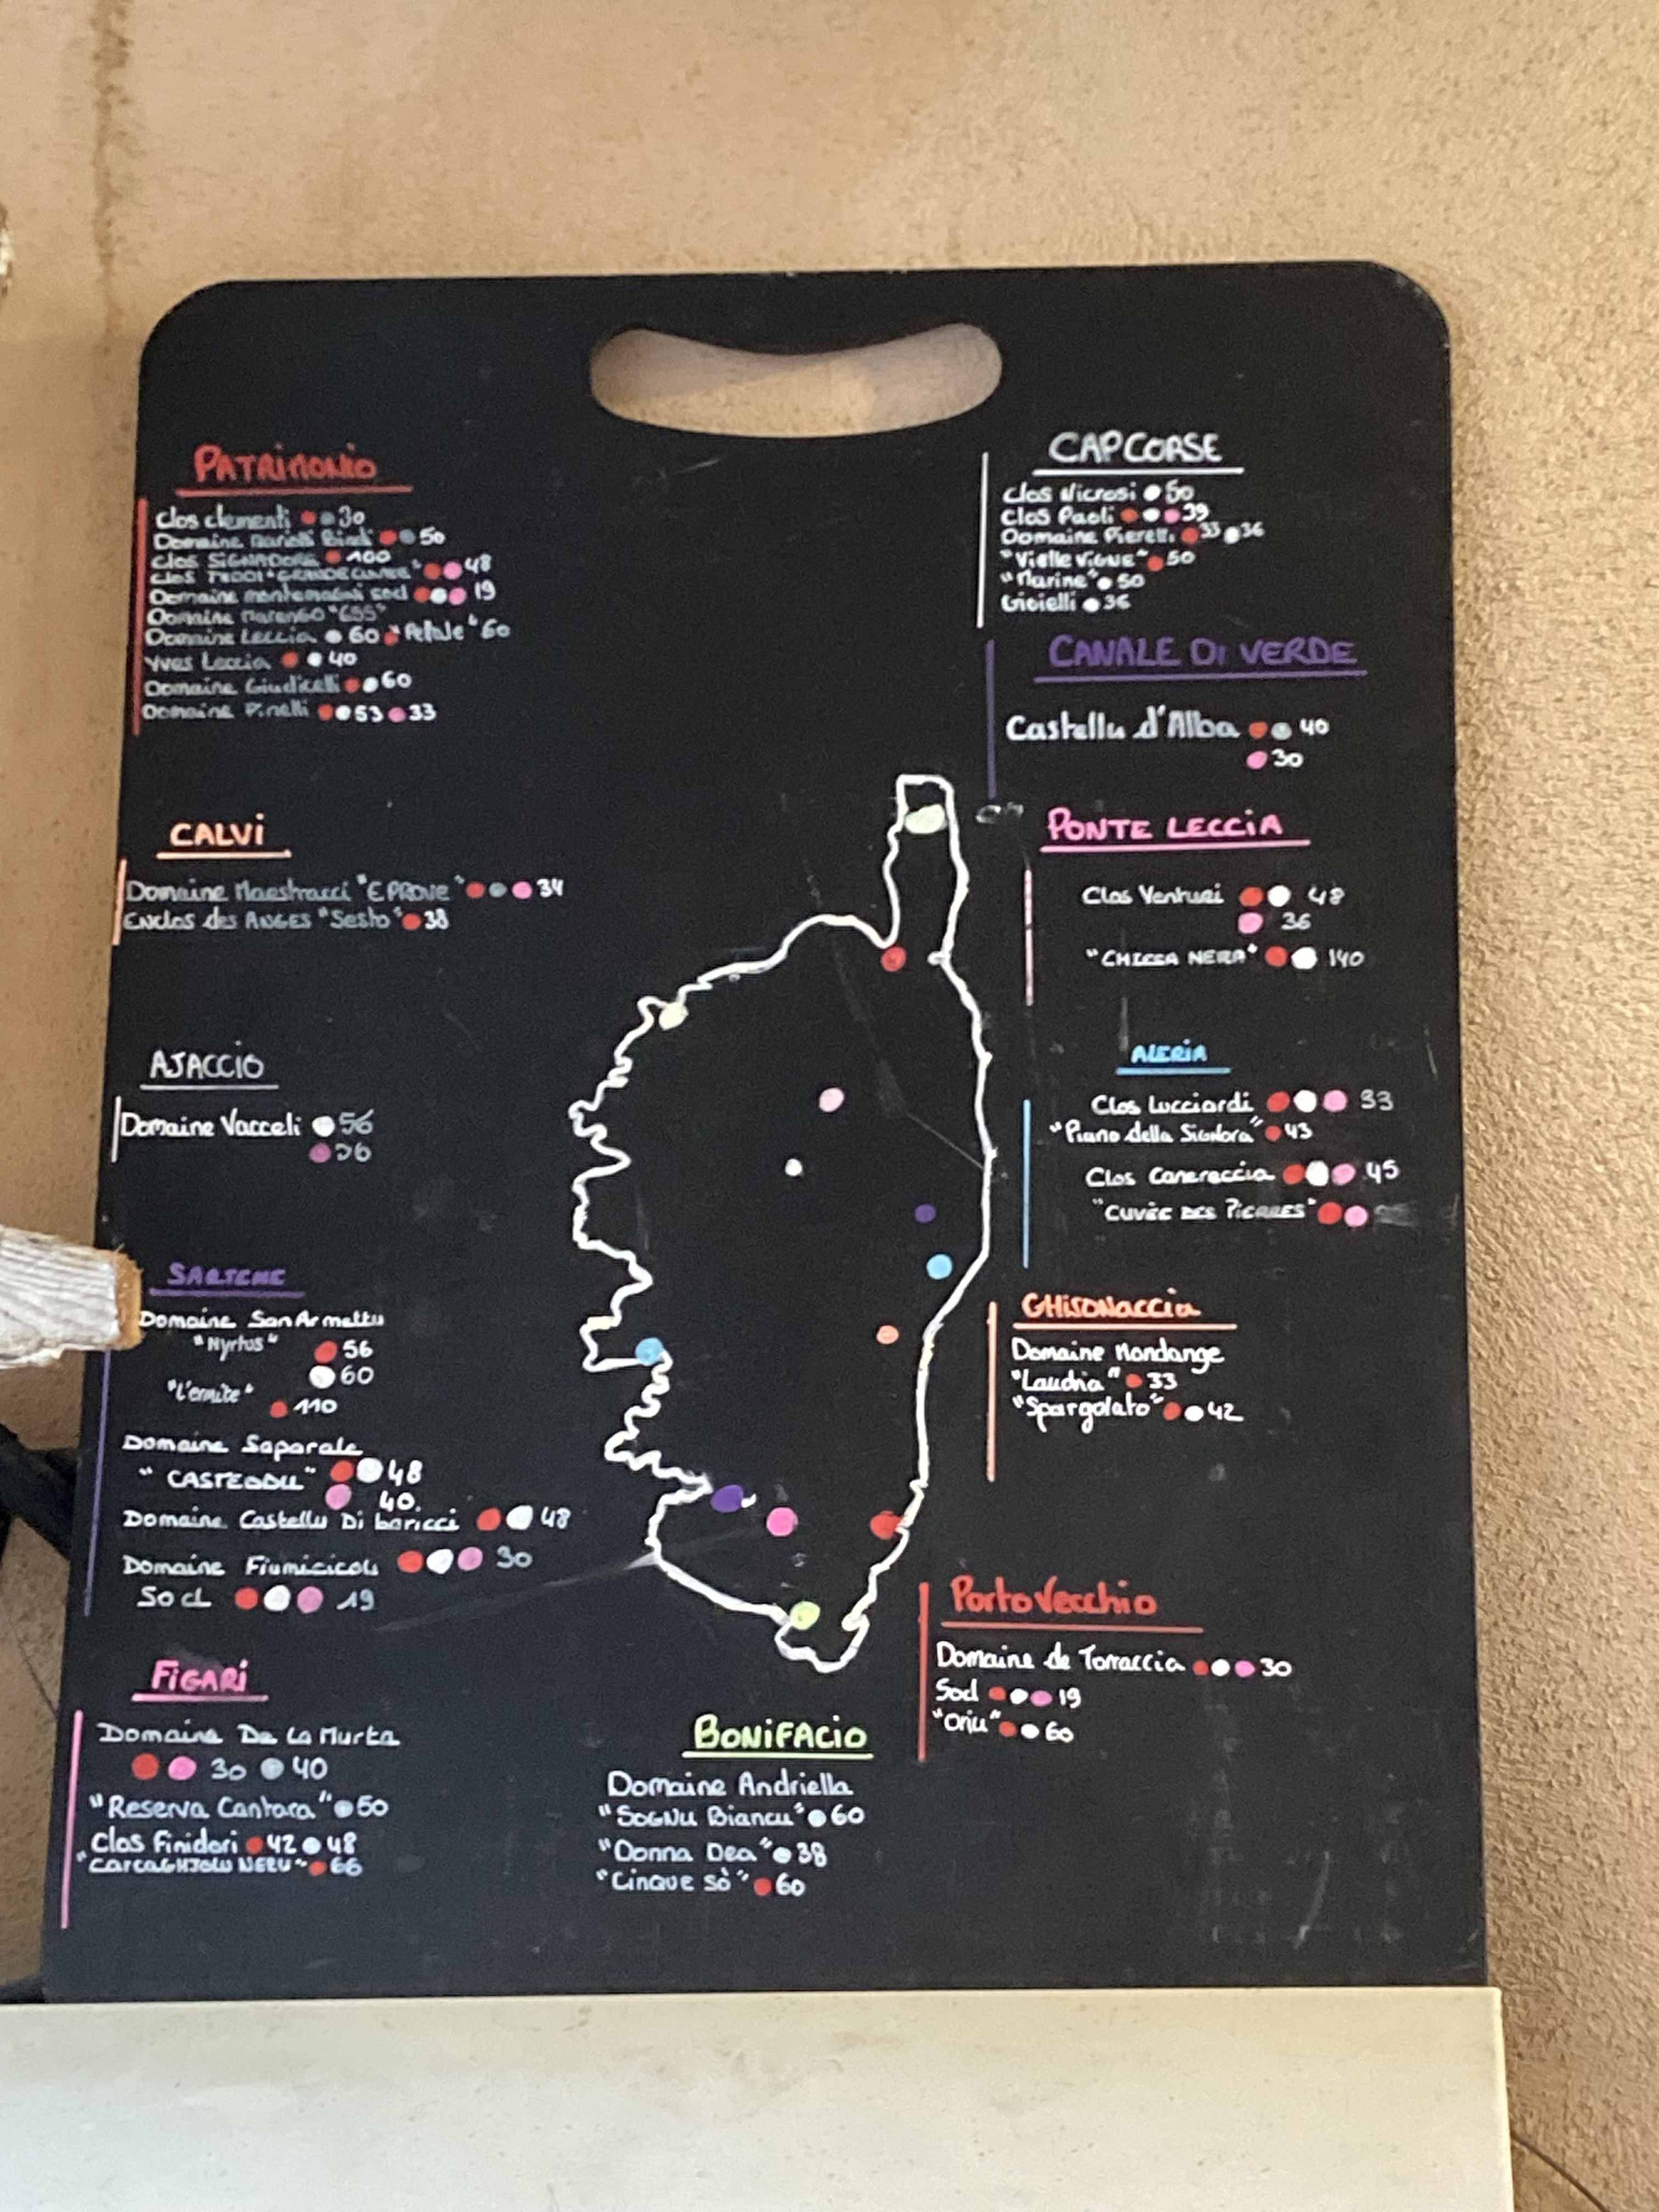 PATRIMONIO
Clos clementi 30
Domaine 50
Clos SIGNADORE 100
Clos "GRANDE CUVEE" 48
Domaine montemagni socl 19
Domaine Marengo
Domaine Leccia 60 "Petale" 60
Yves Leccia 40
Domaine Giudicelli 60
Domaine Pinelli 53 33
CALVI
Domaine Maestracci "E PROVE" 34
Enclos des ANGES "Sesto" 38
AJACCIO
Domaine Vacceli 56
SARTENE
Domaine San Armettu
"Myrtus" 56
60
"L'ermite"
110
Domaine Saparale
"CASTEDDU" 48
40.
Domaine Castellu Di baricci 48
Domaine Fiumicicoli 30
Socl 19
FIGARI
Domaine De La Murta
30 40
"Reserva Cantara" 50
Clos Finidori 42 48
"CARCAGHJOLU NERU" 66
BONIFACIO
Domaine Andriella
"SOGNU Biancu" 60
"Donna Dea" 38
"Cinque sò" 60
CAP CORSE
Clos Nicrosi 50
Clos Paoli 39
Domaine Pieretti 33 36
"Vielle VIGNE" 50
"Marine" 50
Gioielli 36
CANALE DI VERDE
Castellu d'Alba 40
30
PONTE LECCIA
Clos Venturi 48
36
"CHIESA NERA" 140
ALERIA
Clos Lucciardi 33
"Piano della Signora" 43
Clos Canereccia 45
"CUVÉE DES PIERRES"
GHISONACCIA
Domaine Mondange
"Laudria" 33
"Spargolato" 42
Porto Vecchio
Domaine de Torraccia 30
Socl 19
"Oriu" 60